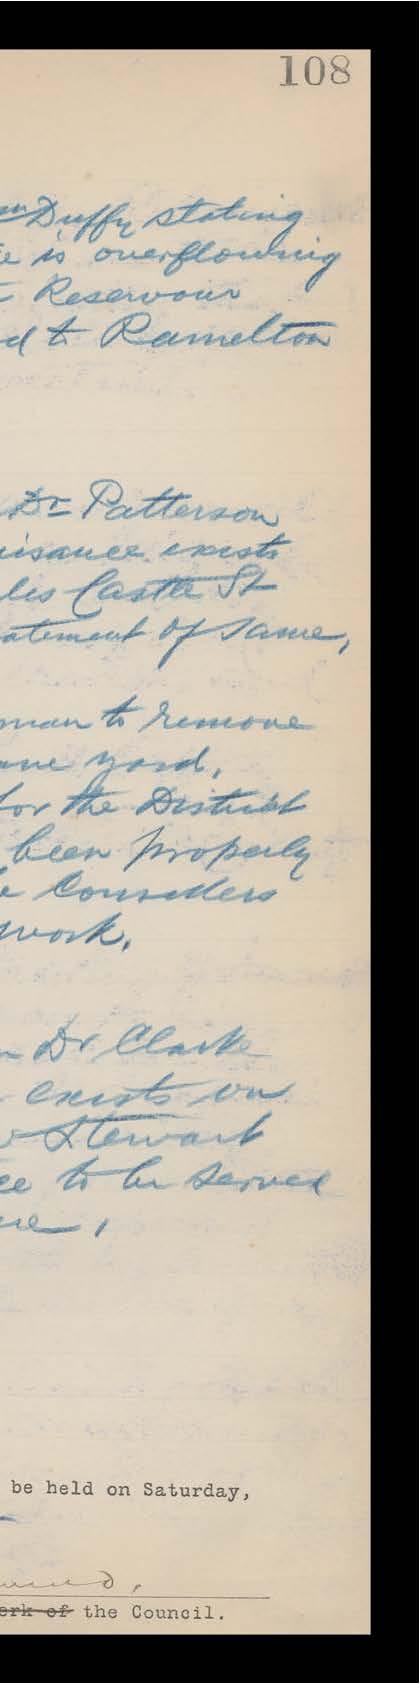 108
Duffy stating
e is overflowing
Reservoir
d to Ramelton
Dr Patterson
uisance exists
les Castle St
atement of same,
man to remove
ane yard,
for the District
been properly
e Considers
work.
Dr Clarke
exists on
Stewart
ce to be served
me,
be held on Saturday,
erk of the Council.